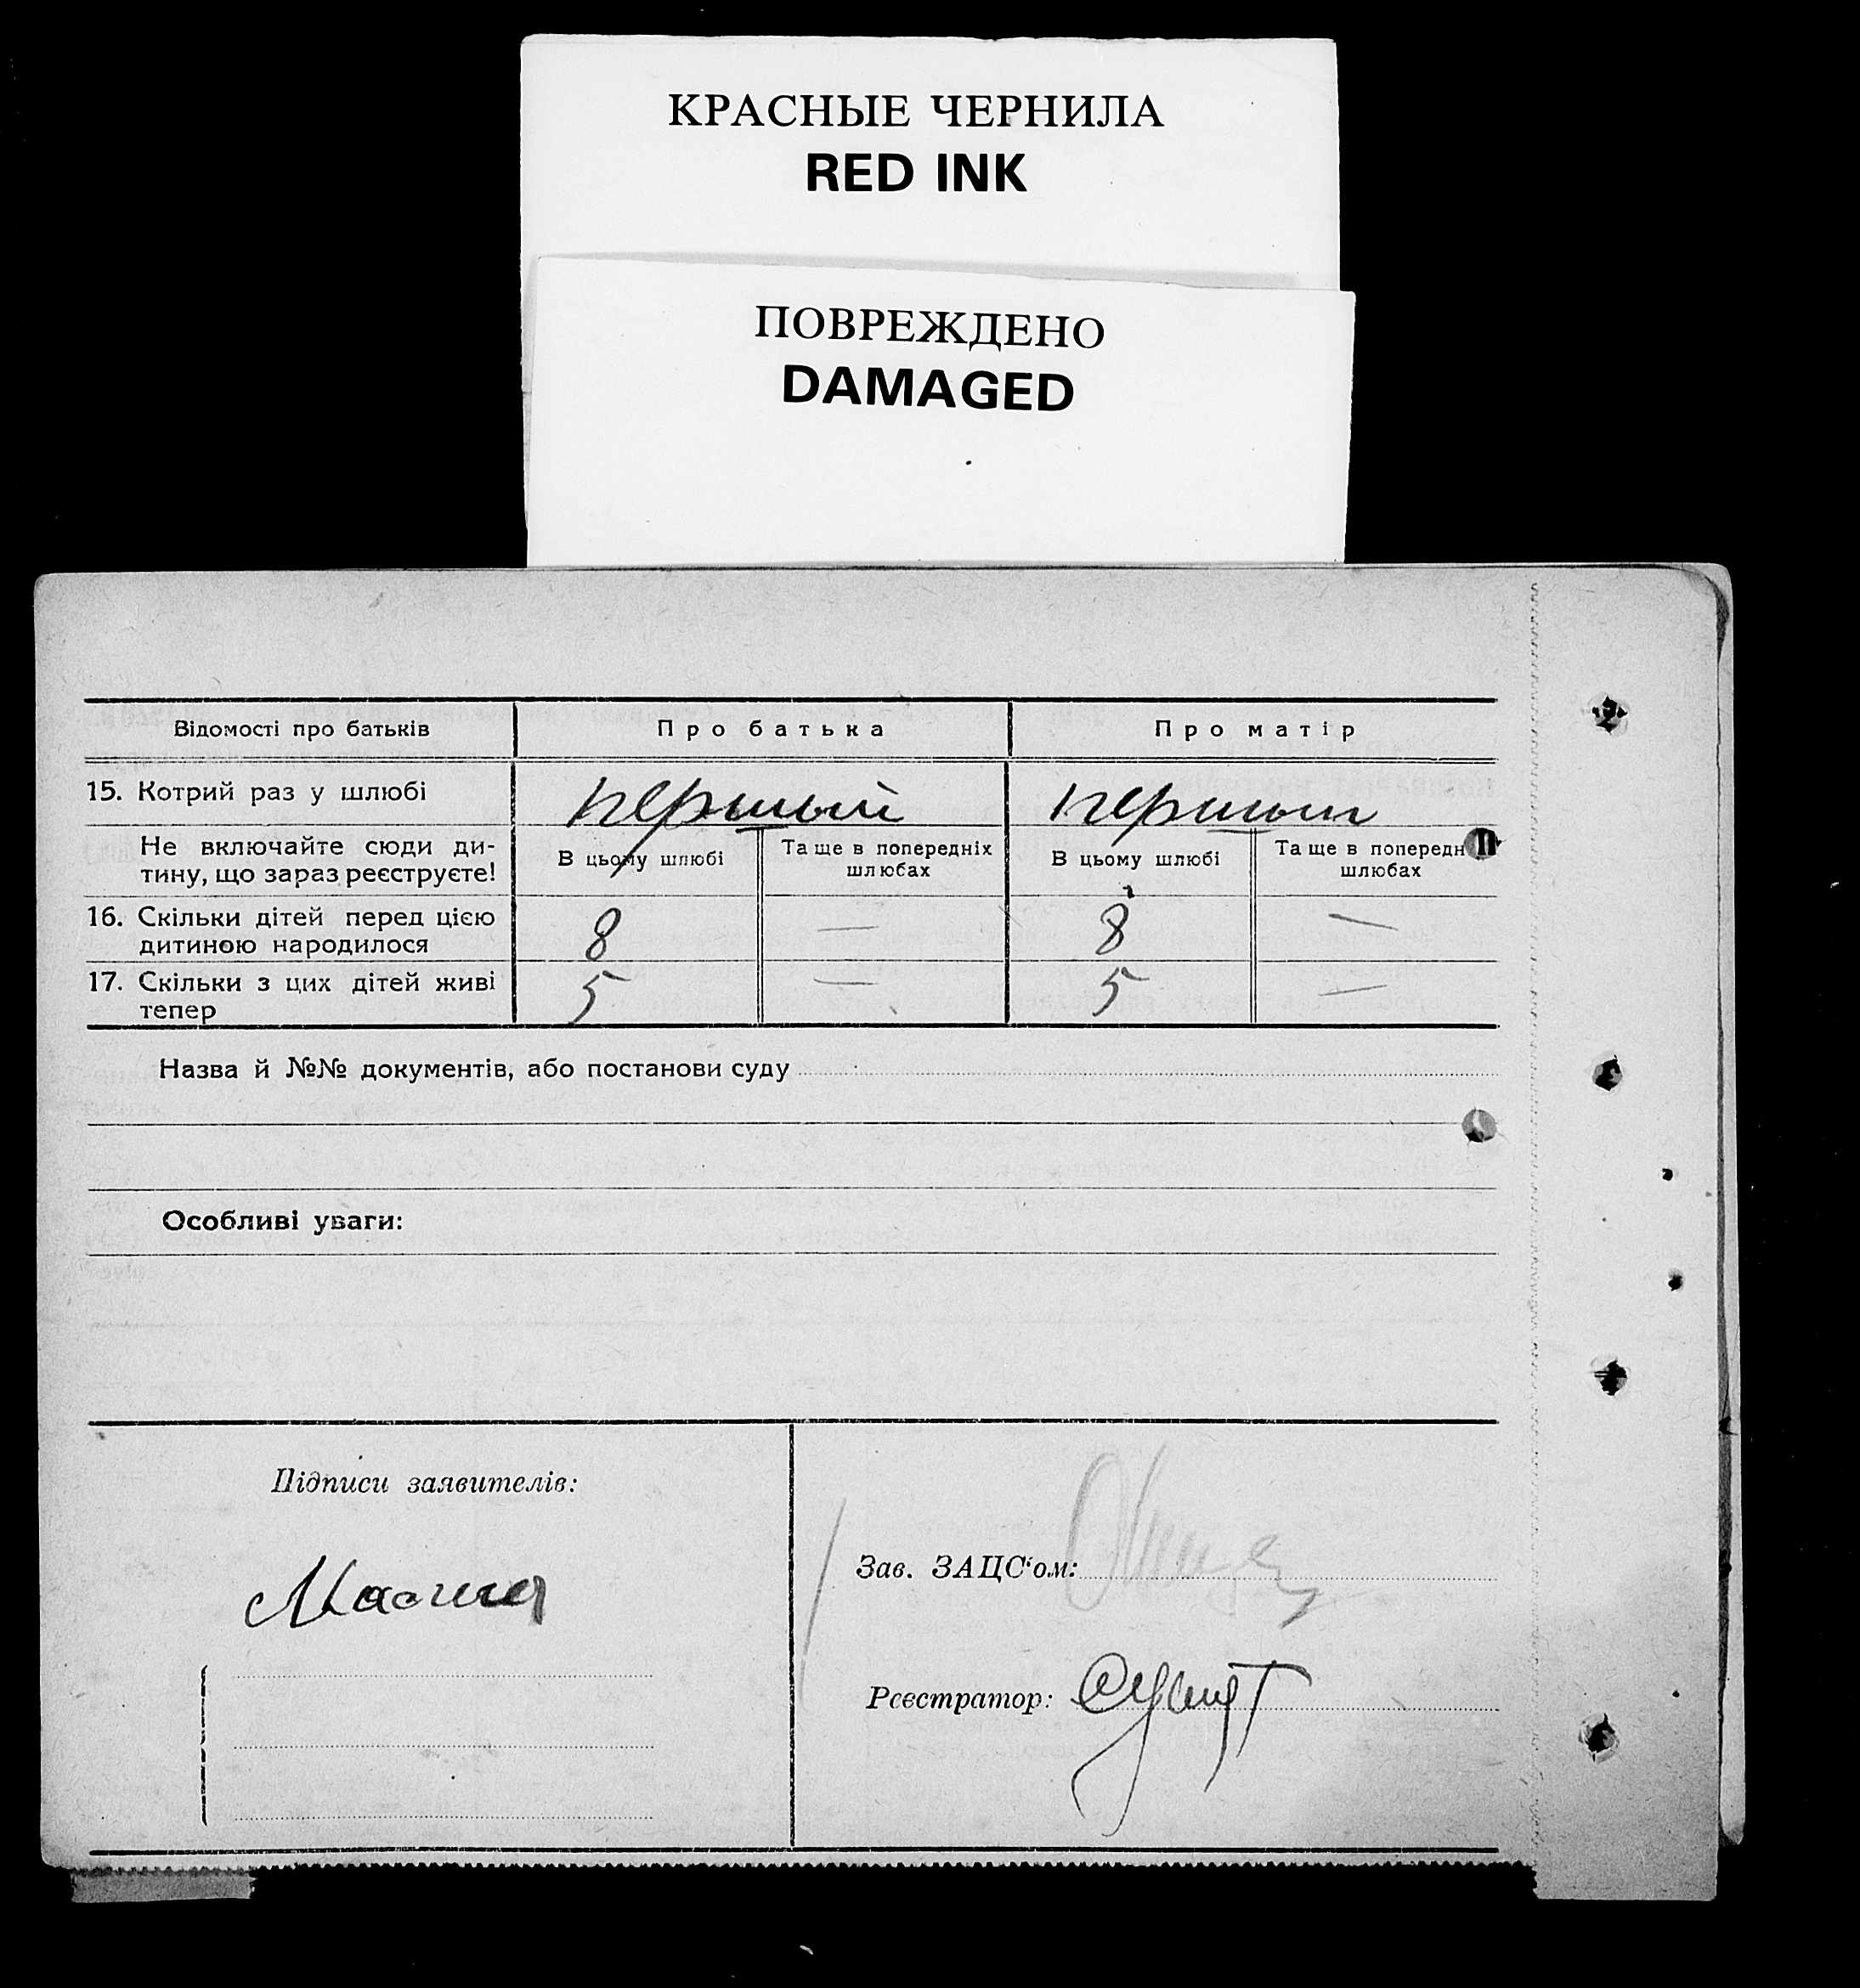 КРАСНЫЕ ЧЕРНИЛА
RED INK
ПОВРЕЖДЕНО
DAMAGED
Відомості про батьків Про батька Про матір
15. Котрий раз у шлюбі первый первый
Не включайте сюди ди-
тину, що зараз реєструєте!
В цьому шлюбі
Та ще в попередніх
шлюбах
В цьому шлюбі
Та ще в попередн
шлюбах
16. Скільки дітей перед цією
дитиною народилося
8 — 8 —
17. Скільки з цих дітей живі
тепер
5 — 5 —
Назва й №№ документів, або постанови суду
Особливі уваги:
Підписи заявителів:
Зав. ЗАЦС'ом:
Реєстратор: